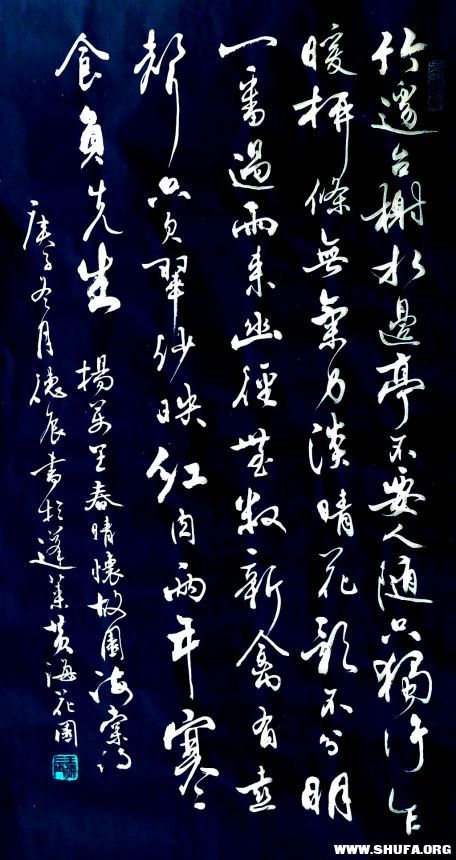 竹邊台榭水邊亭不要人随只獨行乍
暖柳條無氣力淡晴花影不分明
一番過雨来幽徑無数新禽有喜
聲只欠翠紗映红肉兩年寒
食負先生
楊萬里春晴懷故園海棠詩
庚子冬月德辰書於蓬莱黄海花園
WWW.SHUFA.ORG